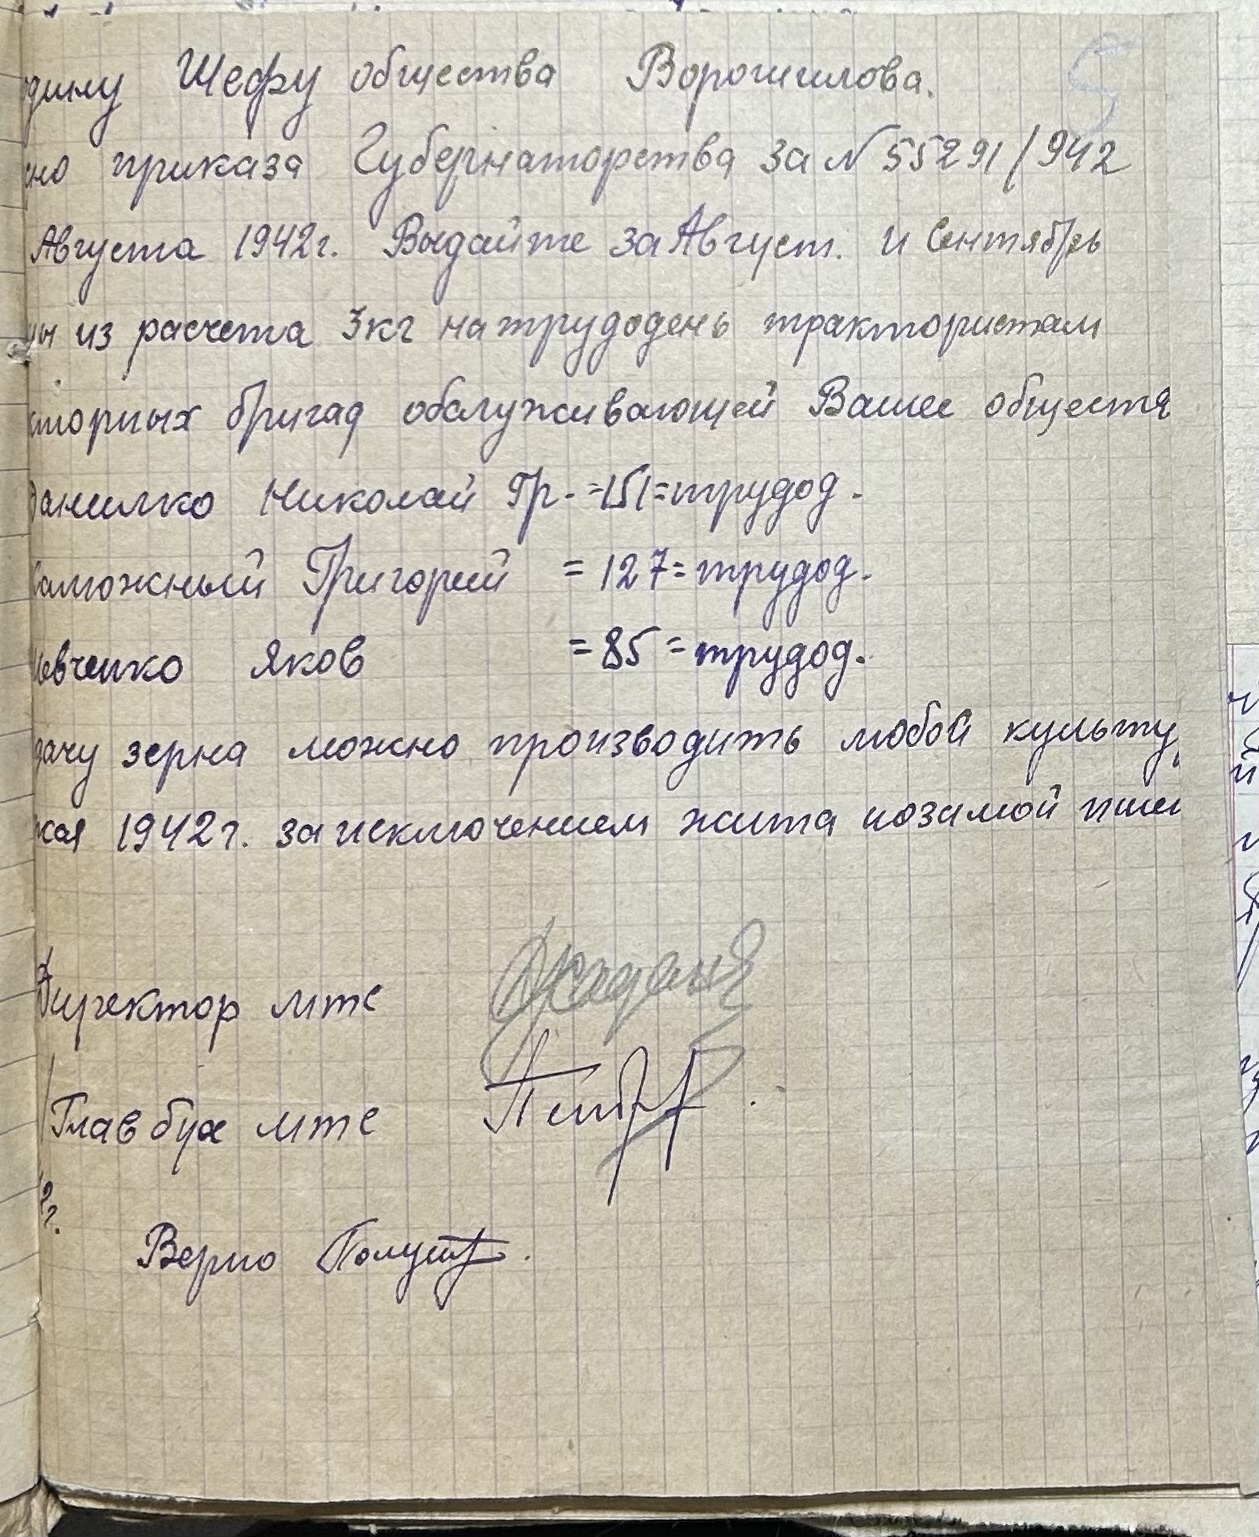 дину Шефу общества Ворошилова.
сно приказа Губернаторства за N 55291/942
Августа 1942 г. Выдайте за Август. и Сентябрь
ны из расчета 3 кг на трудодень трактористам
кторных бригад обслуживающей Вашее обществ
Данилко Николай Гр. =151= трудод.
Заможный Григорий = 127= трудод.
Левченко Яков =85= трудод.
дачу зерна можно производить любой культу
жая 1942 г. за исключением жита и озимой пше
Директор мтс
Главбух мтс
2 г.
Верно
5